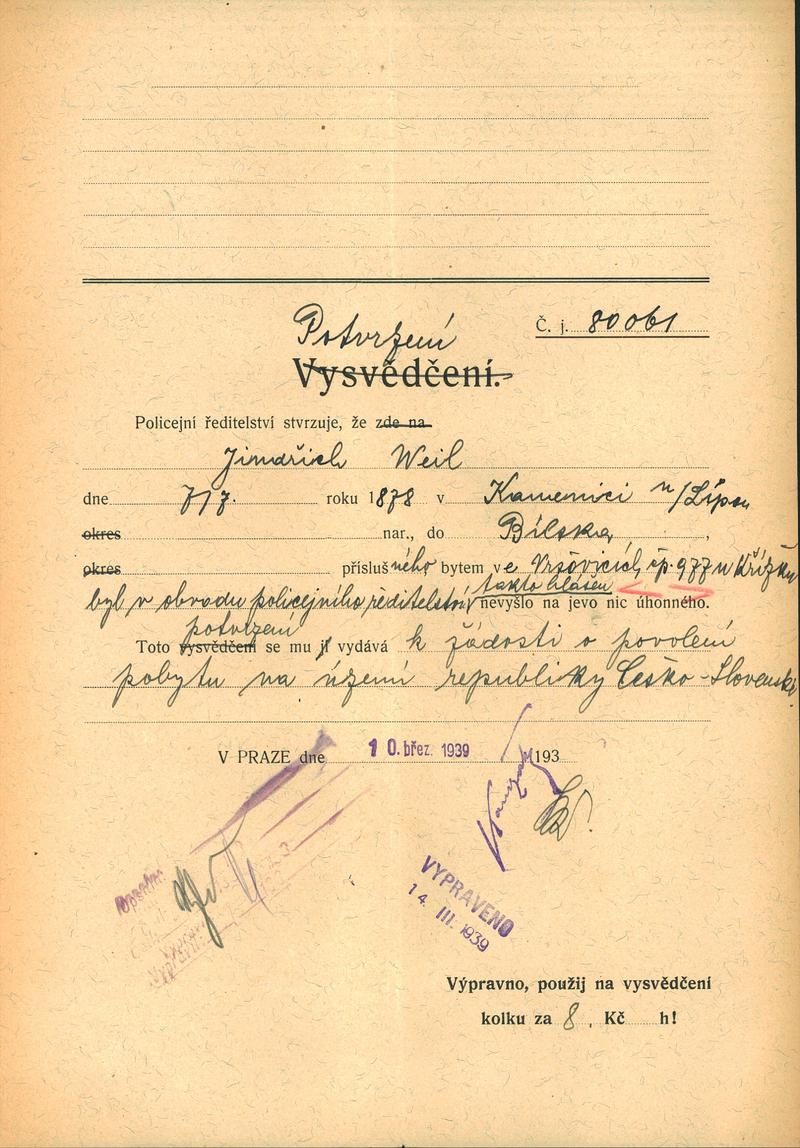 Potvrzení
Č. j. 80061
Vysvědčení.
Policejní ředitelství stvrzuje, že zde na
Jindřich Weil
dne 7/7. roku 1878 v Kamenici n/Lipou
okres nar., do Bílska,
okres přísluš ného, bytem v e Vršovicích, čp. 977 u Křížku
takto hlášen
byl v obvodu policejního ředitelství nevyšlo na jevo nic úhonného.
potvrzení
Toto vysvědčení se mu jí vydává k žádosti o povolení
pobytu na území republiky Česko-Slovenské
V PRAZE dne 10. břez. 1939 193
VYPRAVENO
14 III. 1939
Výpravno, použij na vysvědčení
kolku za 8. Kč h!